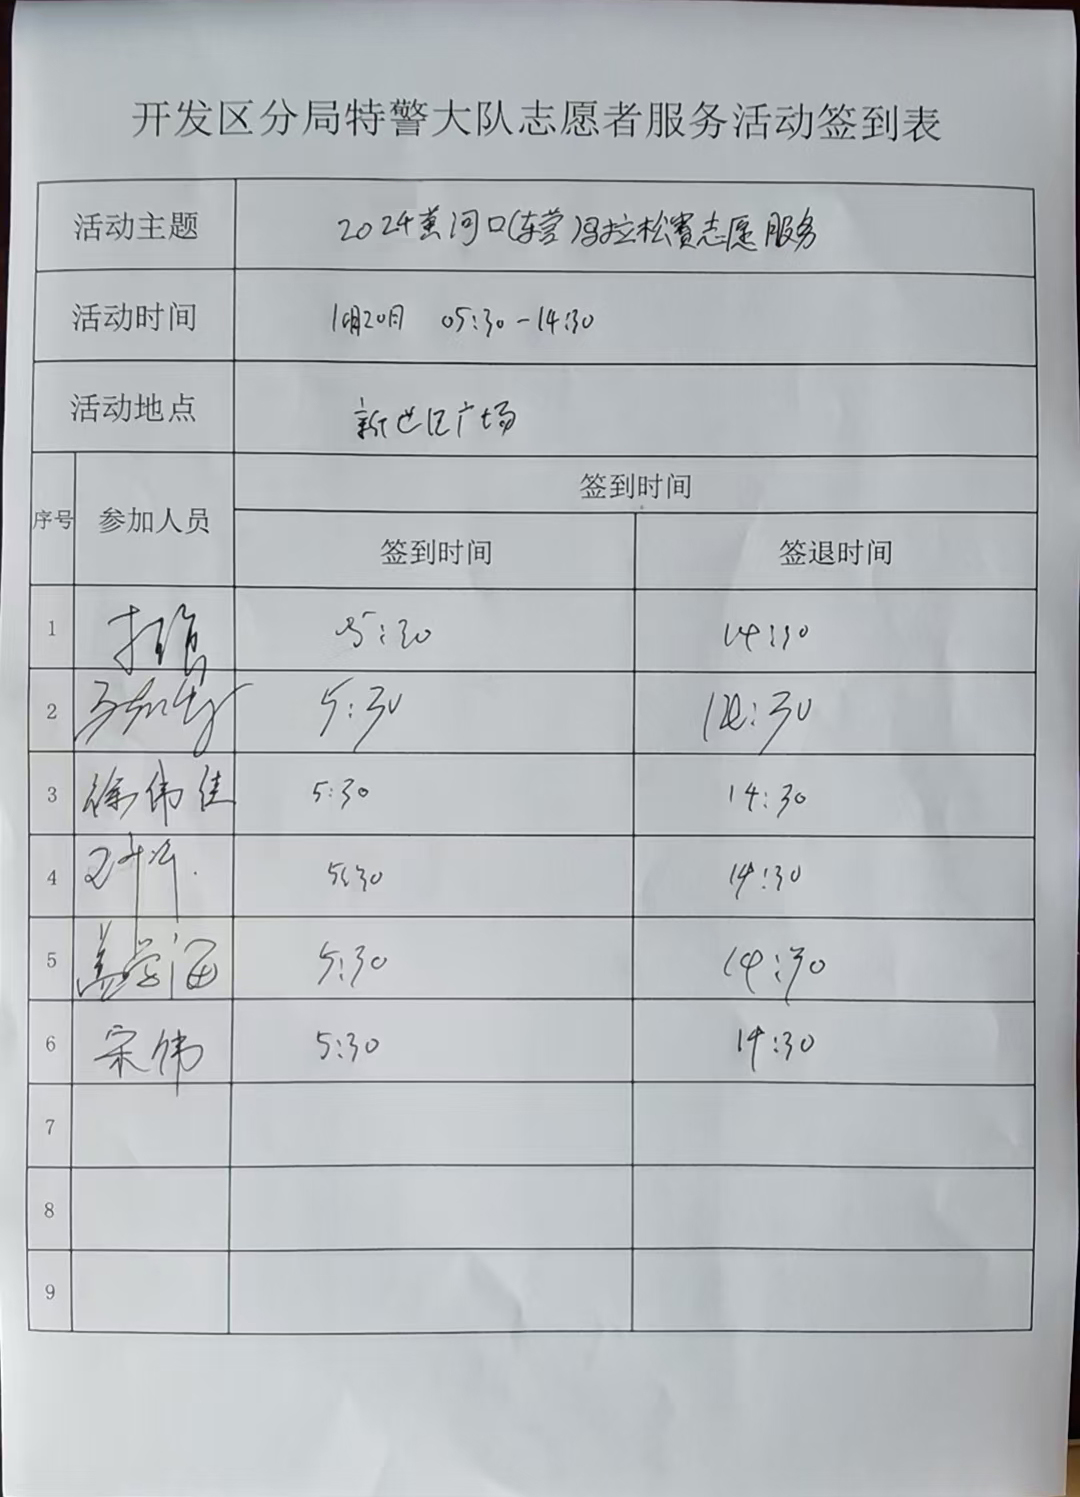 开发区分局特警大队志愿者服务活动签到表
活动主题 2024黄河口(东营)马拉松赛志愿服务
活动时间 10月20日 05:30-14:30
活动地点 新世纪广场
序号 参加人员 签到时间
签到时间 签退时间
1 5:30 14:30
2 5:30 14:30
3 徐伟佳 5:30 14:30
4 5:30 14:30
5 盖学海 5:30 14:30
6 宋伟 5:30 14:30
7
8
9